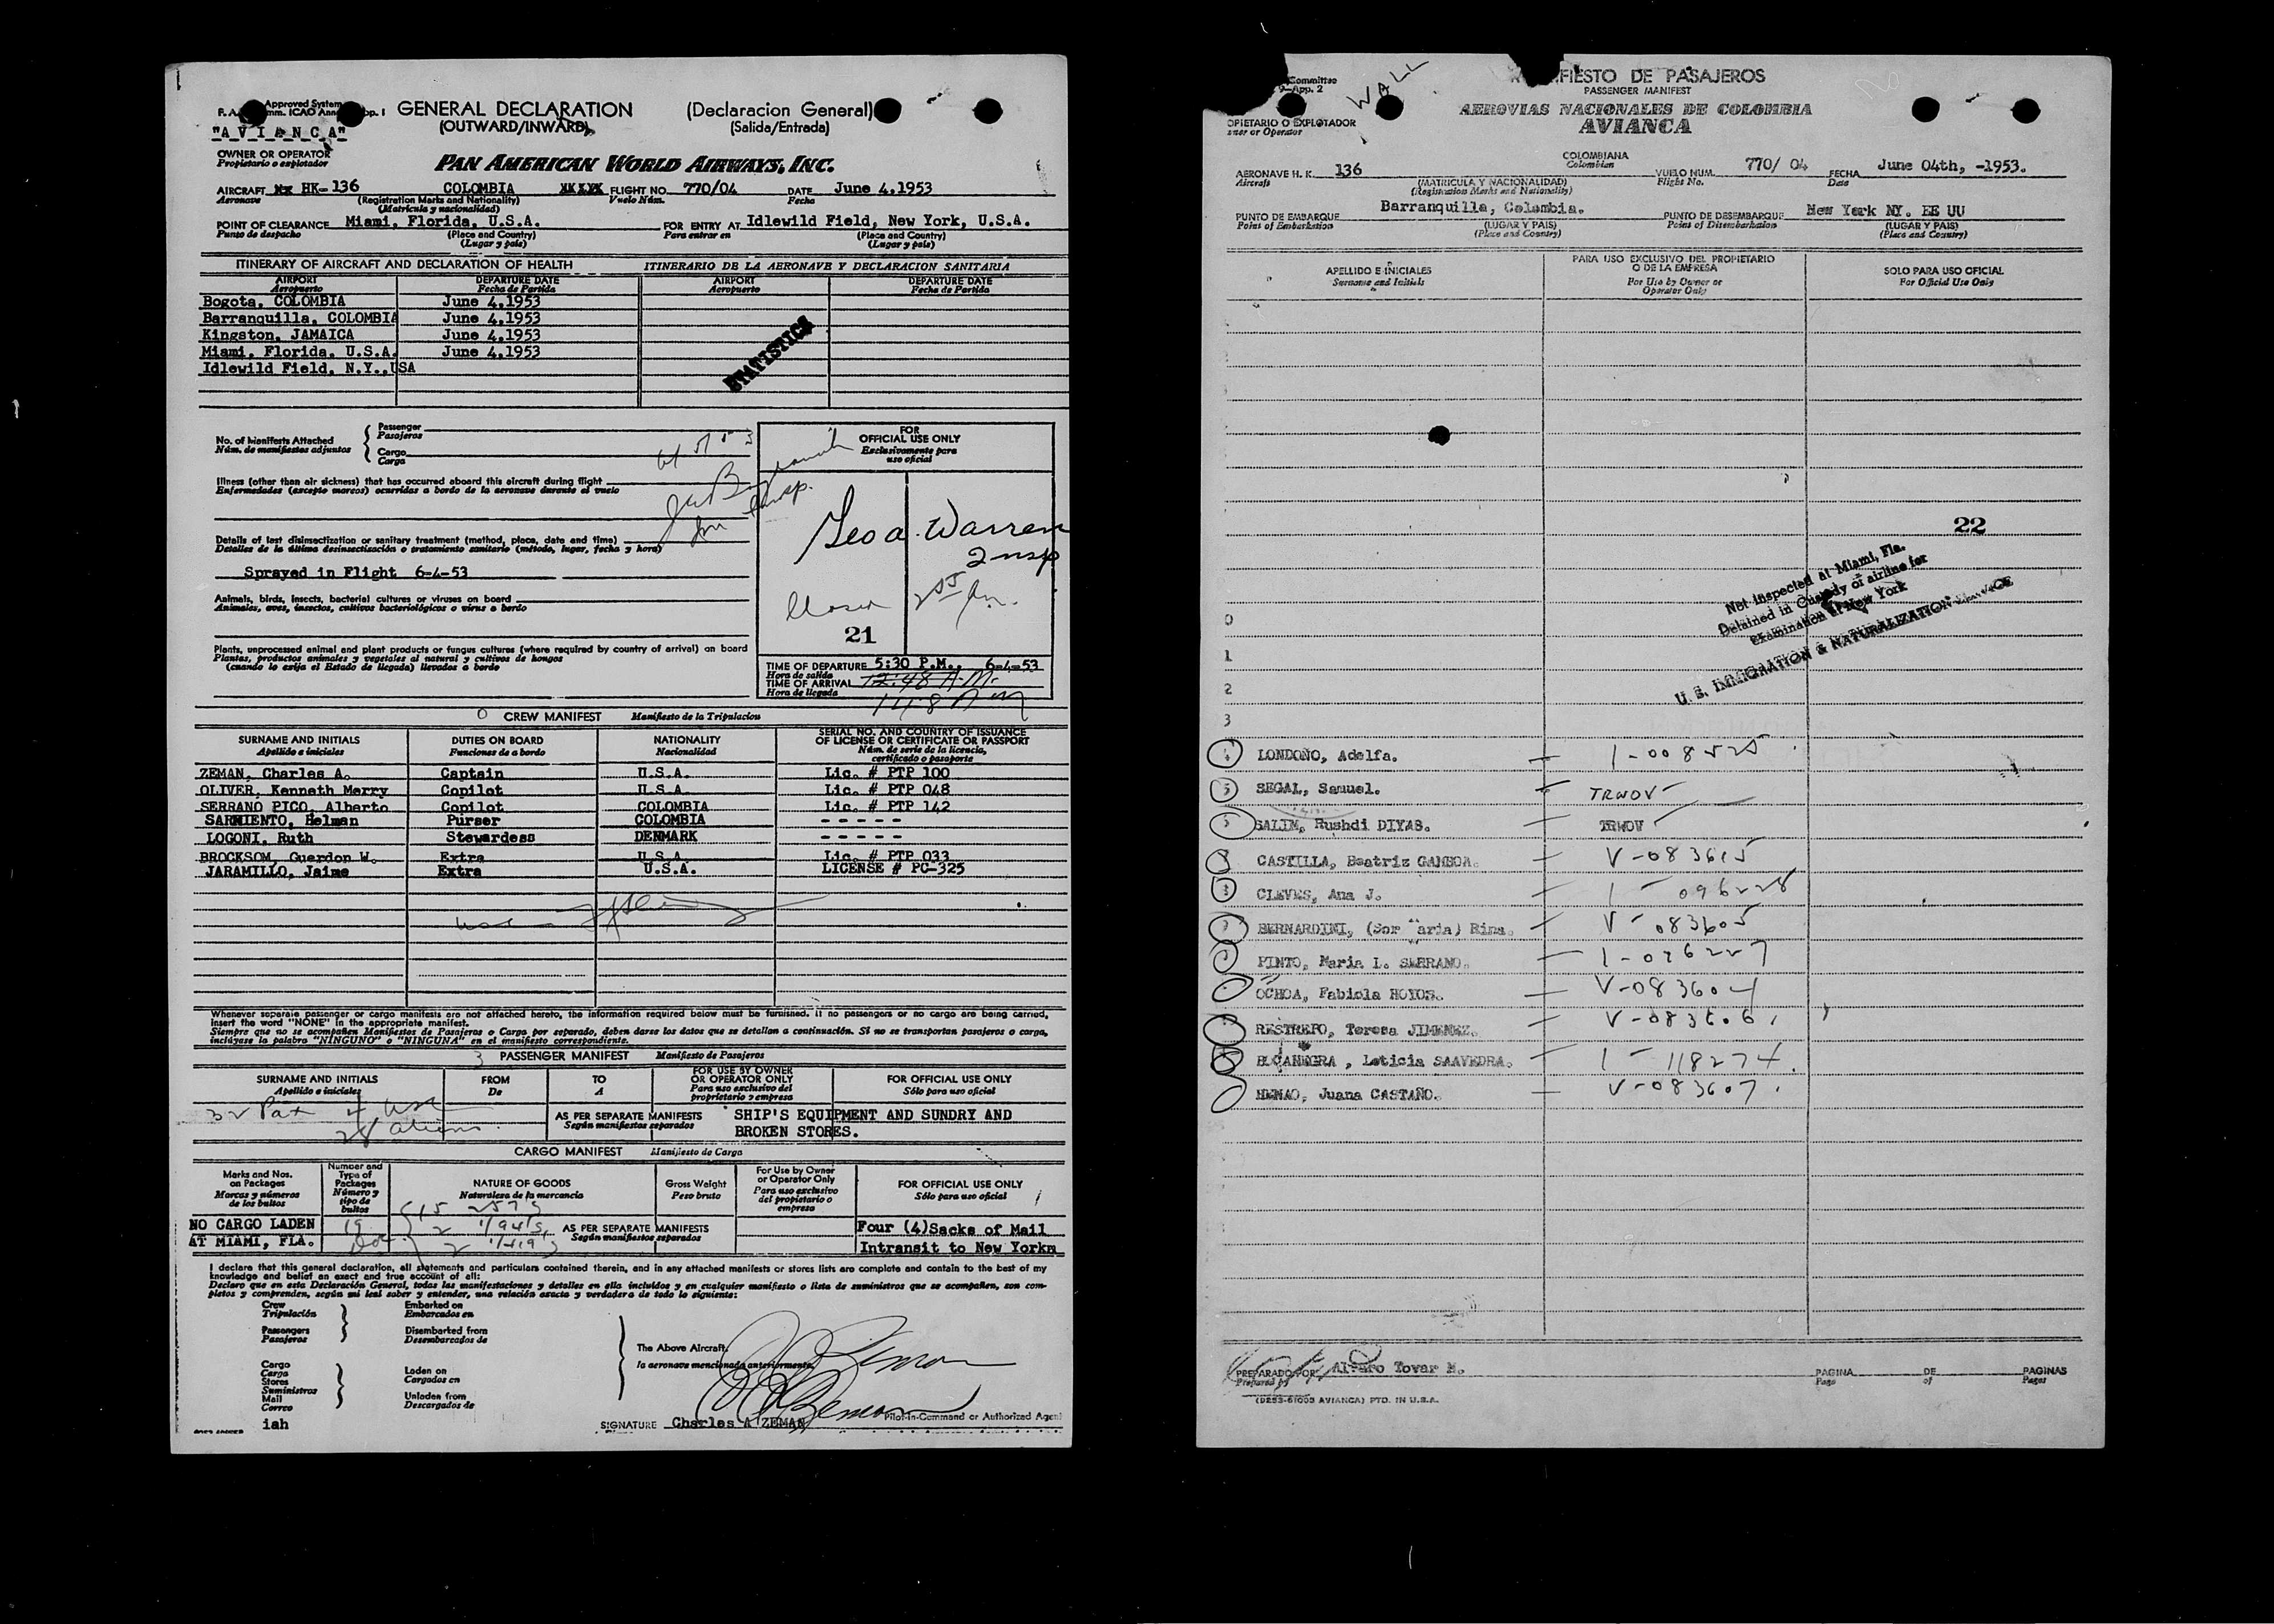 Approved System
"A V I A N C A"
GENERAL DECLARATION (Declaracion General)
(OUTWARD/INWARD) (Salida/Entrada)
OWNER OR OPERATOR
Propietario o explotador
PAN AMERICAN WORLD AIRWAYS, INC.
AIRCRAFT HK-136 COLOMBIA FLIGHT NO. 770/04 DATE June 4,1953
Aeronave (Registration Marks and Nationality) Vuelo Núm. Fecha
(Matrícula y nacionalidad)
POINT OF CLEARANCE Miami, Florida, U.S.A. FOR ENTRY AT Idlewild Field, New York, U.S.A.
Punto de despacho (Place and Country) Para entrar en (Place and Country)
(Lugar y país) (Lugar y país)
ITINERARY OF AIRCRAFT AND DECLARATION OF HEALTH ITINERARIO DE LA AERONAVE Y DECLARACION SANITARIA
AIRPORT DEPARTURE DATE AIRPORT DEPARTURE DATE
Aeropuerto Fecha de Partida Aeropuerto Fecha de Partida
Bogota, COLOMBIA June 4,1953
Barranquilla, COLOMBIA June 4,1953
Kingston, JAMAICA June 4,1953
Miami, Florida, U.S.A. June 4,1953
Idlewild Field, N.Y.,USA
STATISTICS
No. of Manifests Attached
Núm. de manifiestos adjuntos
Passenger
Pasajeros
Cargo
Carga
Illness (other than air sickness) that has occurred aboard this aircraft during flight
Enfermedades (excepto mareos) ocurridas a bordo de la aeronave durante el vuelo
Details of last disinsectization or sanitary treatment (method, place, date and time)
Detalles de la última desinsectización o tratamiento sanitario (método, lugar, fecha y hora)
Sprayed in Flight 6-4-53
Animals, birds, insects, bacterial cultures or viruses on board
Animales, aves, insectos, cultivos bacteriológicos o virus a bordo
Plants, unprocessed animal and plant products or fungus cultures (where required by country of arrival) on board
Plantas, productos animales y vegetales al natural y cultivos de hongos
(cuando lo exija el Estado de llegada) llevados a bordo
FOR
OFFICIAL USE ONLY
Exclusivamente para
uso oficial
Geo a. Warren
Insp
21
TIME OF DEPARTURE 5:30 P.M., 6-4-53
Hora de salida
TIME OF ARRIVAL 12:48 A.M.
Hora de llegada
CREW MANIFEST Manifiesto de la Tripulacion
SURNAME AND INITIALS DUTIES ON BOARD NATIONALITY SERIAL NO. AND COUNTRY OF ISSUANCE OF LICENSE OR CERTIFICATE OR PASSPORT
Apellido e iniciales Funciones de a bordo Nacionalidad Núm. de serie de la licencia, certificado o pasaporte
ZEMAN, Charles A. Captain U.S.A. Lic. # PTP 100
OLIVER, Kenneth Merry Copilot U.S.A. Lic. # PTP 048
SERRANO PICO, Alberto Copilot COLOMBIA Lic. # PTP 142
SARMIENTO, Helman Purser COLOMBIA - - - - -
LOGONI, Ruth Stewardess DENMARK - - - - -
BROCKSOM, Guerdon W. Extra U.S.A. Lic. # PTP 033
JARAMILLO, Jaime Extra U.S.A. LICENSE # PC-325
Whenever separate passenger or cargo manifests are not attached hereto, the information required below must be furnished. If no passengers or no cargo are being carried,
insert the word "NONE" in the appropriate manifest.
Siempre que no se acompañen Manifiestos de Pasajeros o Carga por separado, deben darse los datos que se detallan a continuación. Si no se transportan pasajeros o carga,
inclúyase la palabra "NINGUNO" o "NINGUNA" en el manifiesto correspondiente.
PASSENGER MANIFEST Manifiesto de Pasajeros
SURNAME AND INITIALS FROM TO FOR USE BY OWNER OR OPERATOR ONLY FOR OFFICIAL USE ONLY
Apellido e iniciales De A Para uso exclusivo del propietario o empresa Sólo para uso oficial
32 Pax 4 USC
28 aliens.
AS PER SEPARATE MANIFESTS SHIP'S EQUIPMENT AND SUNDRY AND
Según manifiestos separados BROKEN STORES.
CARGO MANIFEST Manifiesto de Carga
Marks and Nos. on Packages Number and Type of Packages NATURE OF GOODS Gross Weight For Use by Owner or Operator Only FOR OFFICIAL USE ONLY
Marcas y números de los bultos Número y tipo de bultos Naturaleza de la mercancia Peso bruto Para uso exclusivo del propietario o empresa Sólo para uso oficial
NO CARGO LADEN AS PER SEPARATE MANIFESTS Four (4)Sacks of Mail
AT MIAMI, FLA. Según manifiestos separados Intransit to New Yorkm
I declare that this general declaration, all statements and particulars contained therein, and in any attached manifests or stores lists are complete and contain to the best of my
knowledge and belief an exact and true account of all:
Declaro que en esta Declaración General, todas las manifestaciones y detalles en ella incluídos y en cualquier manifiesto o lista de suministros que se acompañen, son com-
pletos y comprenden, según mi leal saber y entender, una relación exacta y verdadera de todo lo siguiente:
Crew Embarked on
Tripulación Embarcados en
Passengers Disembarked from
Pasajeros Desembarcados de
Cargo Laden on
Carga Cargados en
Stores
Suministros
Mail Unladen from
Correo Descargados de
The Above Aircraft.
la aeronave mencionada anteriormente.
iah
SIGNATURE Charles A ZEMAN Pilot-in-Command or Authorized Agent
Committee
App. 2
WALL
FIESTO DE PASAJEROS
PASSENGER MANIFEST
AEROVIAS NACIONALES DE COLOMBIA
AVIANCA
OPIETARIO O EXPLOTADOR
ner or Operator
AERONAVE H. K. 136 COLOMBIANA VUELO NUM. 770/ 04 FECHA June 04th, -1953.
Aircraft Colombian Flight No. Date
(MATRICULA Y NACIONALIDAD)
(Registration Marks and Nationality)
PUNTO DE EMBARQUE Barranquilla, Colombia. PUNTO DE DESEMBARQUE New York NY. EE UU
Point of Embarkation (LUGAR Y PAIS) Point of Disembarkation (LUGAR Y PAIS)
(Place and Country) (Place and Country)
APELLIDO E INICIALES PARA USO EXCLUSIVO DEL PROPIETARIO O DE LA EMPRESA SOLO PARA USO OFICIAL
Surname and Initials For Use by Owner or Operator Only For Official Use Only
22
Not inspected at Miami, Fla.
Detained in Custody of airline for
examination at New York
U. S. IMMIGRATION & NATURALIZATION SERVICE
0
1
2
3
LONDOÑO, Adelfa. — 1-008525
SEGAL, Samuel. — TRWOV
SALIM, Rushdi DIYAB. — TRWOV
CASTILLA, Beatriz GAMBOA. — V-083615
CLEVES, Ana J. — 1-096228
BERNARDINI, (Sor aria) Rina. — V-083605
PINTO, Maria L. SERRANO. — 1-096227
OCHOA, Fabiola HOYOS. — V-083604
RESTREPO, Teresa JIMENEZ. — V-083606
BOCANEGRA , Leticia SAAVEDRA. — 1-118274.
HENAO, Juana CASTAÑO. — V-083607
PREPARADO POR Alvaro Tovar M. PAGINA DE PAGINAS
Prepared by Page of Pages
(9253-61003 AVIANCA) PTD. IN U.S.A.